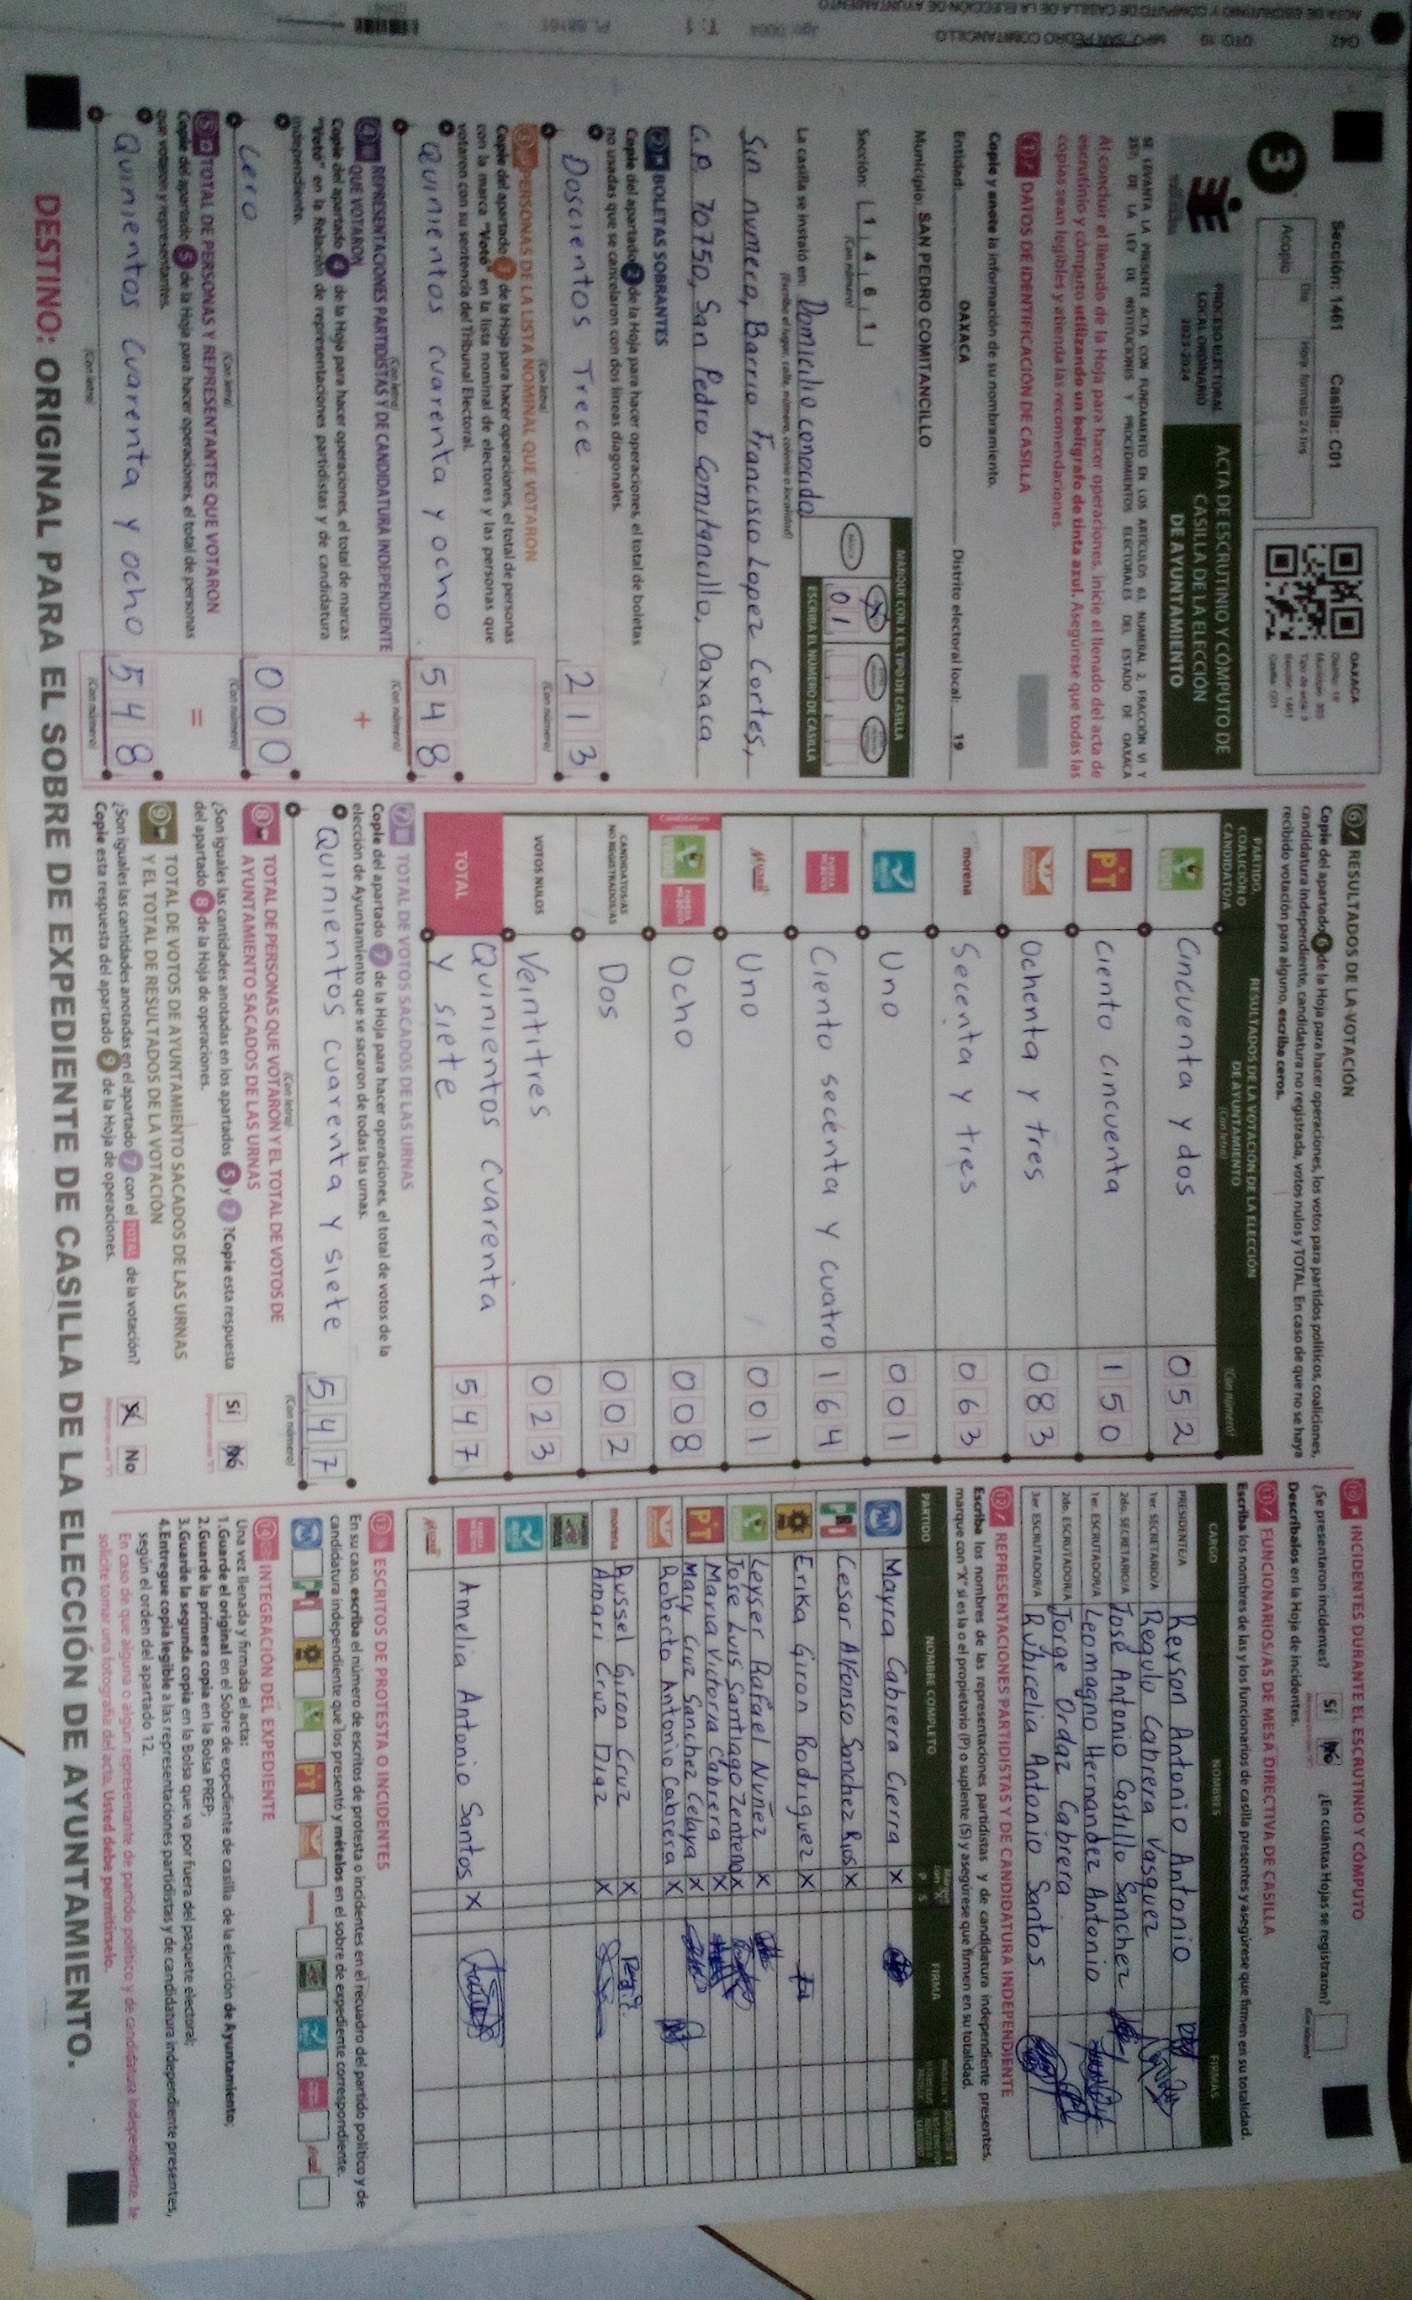 Sección: 1461 Casilla: C01
3
Acopio
Día
Hora: formato 24 hrs
OAXACA
PROCESO ELECTORAL
LOCAL ORDINARIO
2023-2024
ACTA DE ESCRUTINIO Y CÓMPUTO DE
CASILLA DE LA ELECCIÓN
DE AYUNTAMIENTO
Al concluir el llenado de la Hoja para hacer operaciones, inicie el llenado del acta de
escrutinio y cómputo utilizando un bolígrafo de tinta azul. Asegúrese que todas las
copias sean legibles y atienda las recomendaciones.
1 DATOS DE IDENTIFICACIÓN DE CASILLA
Copie y anote la información de su nombramiento.
Entidad: OAXACA Distrito electoral local: 19
Municipio: SAN PEDRO COMITANCILLO
Sección: 1 4 6 1
(Con número)
MARQUE CON X EL TIPO DE CASILLA
X
0 1
ESCRIBA EL NÚMERO DE CASILLA
La casilla se instaló en: Domicilio conocido
(Escriba el lugar, calle, número, colonia o localidad)
Sin numero, Barrio Francisco Lopez Cortes,
C.P. 70750, San Pedro Comitancillo, Oaxaca
2 BOLETAS SOBRANTES
Copie del apartado 2 de la Hoja para hacer operaciones, el total de boletas
no usadas que se cancelaron con dos líneas diagonales.
Doscientos Trece 2 1 3
(Con letra) (Con número)
3 PERSONAS DE LA LISTA NOMINAL QUE VOTARON
Copie del apartado 3 de la Hoja para hacer operaciones, el total de personas
con la marca "Votó" en la lista nominal de electores y las personas que
votaron con su sentencia del Tribunal Electoral.
Quinientos cuarenta y ocho 5 4 8
(Con letra) (Con número)
4 REPRESENTACIONES PARTIDISTAS Y DE CANDIDATURA INDEPENDIENTE
QUE VOTARON
+
Copie del apartado 4 de la Hoja para hacer operaciones, el total de marcas
"Votó" en la Relación de representaciones partidistas y de candidatura
independiente.
Cero 0 0 0
(Con letra) (Con número)
5 TOTAL DE PERSONAS Y REPRESENTANTES QUE VOTARON
=
Copie del apartado 5 de la Hoja para hacer operaciones, el total de personas
que votaron y representantes.
Quinientos Cuarenta y ocho 5 4 8
(Con letra) (Con número)
6 RESULTADOS DE LA VOTACIÓN
Copie del apartado 6 de la Hoja para hacer operaciones, los votos para partidos políticos, coaliciones,
candidatura independiente, candidatura no registrada, votos nulos y TOTAL. En caso de que no se haya
recibido votación para alguno, escriba ceros.
PARTIDO,
COALICIÓN O
CANDIDATO/A
RESULTADOS DE LA VOTACIÓN DE LA ELECCIÓN
DE AYUNTAMIENTO
(Con letra)
(Con número)
Cincuenta y dos 0 5 2
PT Ciento cincuenta 1 5 0
Ochenta y tres 0 8 3
morena Secenta y tres 0 6 3
Uno 0 0 1
Ciento secenta y cuatro 1 6 4
Uno 0 0 1
Ocho 0 0 8
CANDIDATOS/AS
NO REGISTRADOS/AS Dos 0 0 2
VOTOS NULOS Veintitres 0 2 3
TOTAL Quinientos cuarenta
y siete 5 4 7
7 TOTAL DE VOTOS SACADOS DE LAS URNAS
Copie del apartado 7 de la Hoja para hacer operaciones, el total de votos de la
elección de Ayuntamiento que se sacaron de todas las urnas.
Quinientos cuarenta y siete 5 4 7
(Con letra) (Con número)
8 TOTAL DE PERSONAS QUE VOTARON Y EL TOTAL DE VOTOS DE
AYUNTAMIENTO SACADOS DE LAS URNAS
¿Son iguales las cantidades anotadas en los apartados 5 y 7 ?Copie esta respuesta
del apartado 8 de la Hoja de operaciones.
Sí No
9 TOTAL DE VOTOS DE AYUNTAMIENTO SACADOS DE LAS URNAS
Y EL TOTAL DE RESULTADOS DE LA VOTACIÓN
¿Son iguales las cantidades anotadas en el apartado 7 con el TOTAL de la votación?
Copie esta respuesta del apartado 9 de la Hoja de operaciones.
X No
10 INCIDENTES DURANTE EL ESCRUTINIO Y CÓMPUTO
¿Se presentaron incidentes? Sí No ¿En cuántas Hojas se registraron?
Descríbalos en la Hoja de incidentes.
11 FUNCIONARIOS/AS DE MESA DIRECTIVA DE CASILLA
Escriba los nombres de las y los funcionarios de casilla presentes y asegúrese que firmen en su totalidad.
CARGO NOMBRES FIRMAS
PRESIDENTE/A Reyson Antonio Antonio
1er. SECRETARIO/A Regulo Cabrera Vasquez
2do. SECRETARIO/A José Antonio Castillo Sanchez
1er. ESCRUTADOR/A Leomagno Hernandez Antonio
2do. ESCRUTADOR/A Jorge Ordaz Cabrera
3er. ESCRUTADOR/A Rubicelia Antonio Santos
12 REPRESENTACIONES PARTIDISTAS Y DE CANDIDATURA INDEPENDIENTE
Escriba los nombres de las representaciones partidistas y de candidatura independiente presentes,
marque con "X" si es la o el propietario (P) o suplente (S) y asegúrese que firmen en su totalidad.
PARTIDO NOMBRE COMPLETO P S FIRMA
Mayra Cabrera Cierra X
Cesar Alfonso Sanchez Rios X
Erika Giron Rodriguez X
Leyser Rafael Nuñez X
Jose Luis Santiago Zenteno X
Maria Victoria Cabrera X
PT Mary Cruz Sanchez Celaya X
Roberto Antonio Cabrera X
morena Russel Giron Cruz X
Amari Cruz Diaz X
Amelia Antonio Santos X
13 ESCRITOS DE PROTESTA O INCIDENTES
En su caso, escriba el número de escritos de protesta o incidentes en el recuadro del partido político y de
candidatura independiente que los presentó y métalos en el sobre de expediente correspondiente.
PT
14 INTEGRACIÓN DEL EXPEDIENTE
Una vez llenada y firmada el acta:
1.Guarde el original en el Sobre de expediente de casilla de la elección de Ayuntamiento;
2.Guarde la primera copia en la Bolsa PREP;
3.Guarde la segunda copia en la Bolsa que va por fuera del paquete electoral;
4.Entregue copia legible a las representaciones partidistas y de candidatura independiente presentes,
según el orden del apartado 12.
En caso de que alguna o algún representante de partido político y de candidatura independiente, le
solicite tomar una fotografía del acta, Usted debe permitírselo.
DESTINO: ORIGINAL PARA EL SOBRE DE EXPEDIENTE DE CASILLA DE LA ELECCIÓN DE AYUNTAMIENTO.